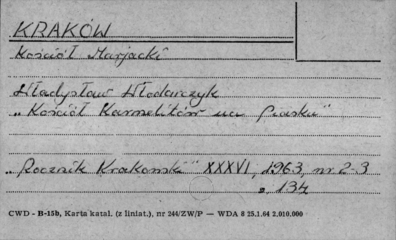 KRAKÓW
Kościół Marjacki
Władysław Włodarczyk
„Kościół Karmelitów na Piasku"
„Rocznik Krakowski" XXXVI, 1963, nr 2-3
s. 134
CWD - B-15b, Karta katal. (z liniat.), nr 244/ZW/P — WDA 8 25.1.64 2.010.000